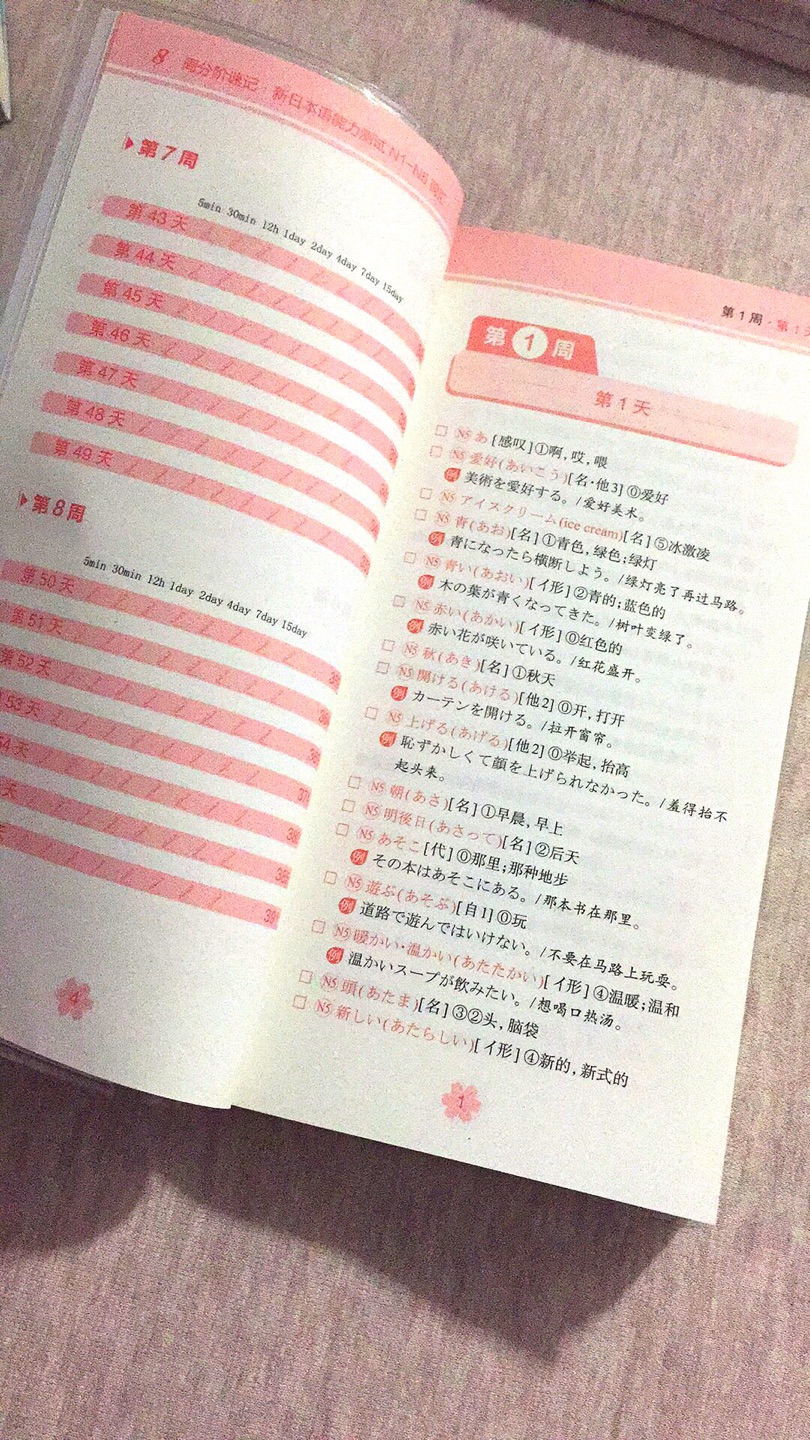 8 高分阶速记 新日本语能力测试 N1-N5 词汇
第7周
5min 30min 12h 1day 2day 4day 7day 15day
第 43 天
第 44 天
第 45 天
第 46 天
第 47 天
第 48 天
第 49 天
第8周
5min 30min 12h 1day 2day 4day 7day 15day
第 50 天
第 51 天
第 52 天
53 天
54 天
天
4
第 1 周·第 1
第 1 周
第 1 天
□ N5 あ [感叹]①啊,哎,喂
□ N5 爱好(あいこう)[名·他3] ⓪爱好
例 美術を愛好する。/爱好美术。
□ N5 アイスクリーム(ice cream)[名] ⑤冰激凌
□ N5 青(あお)[名] ①青色,绿色;绿灯
例 青になったら横断しよう。/绿灯亮了再过马路。
□ N5 青い(あおい)[イ形] ②青的;蓝色的
例 木の葉が青くなってきた。/树叶变绿了。
□ N5 赤い(あかい)[イ形] ⓪红色的
例 赤い花が咲いている。/红花盛开。
□ N5 秋(あき)[名] ①秋天
□ N5 開ける(あける)[他2] ⓪开,打开
例 カーテンを開ける。/拉开窗帘。
□ N5 上げる(あげる)[他2] ⓪举起,抬高
例 恥ずかしくて顔を上げられなかった。/羞得抬不
起头来。
□ N5 朝(あさ)[名] ①早晨,早上
□ N5 明後日(あさって)[名] ②后天
□ N5 あそこ[代] ⓪那里;那种地步
例 その本はあそこにある。/那本书在那里。
□ N5 遊ぶ(あそぶ)[自1] ⓪玩
例 道路で遊んではいけない。/不要在马路上玩耍。
□ N5 暖かい·温かい(あたたかい)[イ形] ④温暖;温和
例 温かいスープが飲みたい。/想喝口热汤。
□ N5 頭(あたま)[名] ③②头,脑袋
□ N5 新しい(あたらしい)[イ形] ④新的,新式的
1